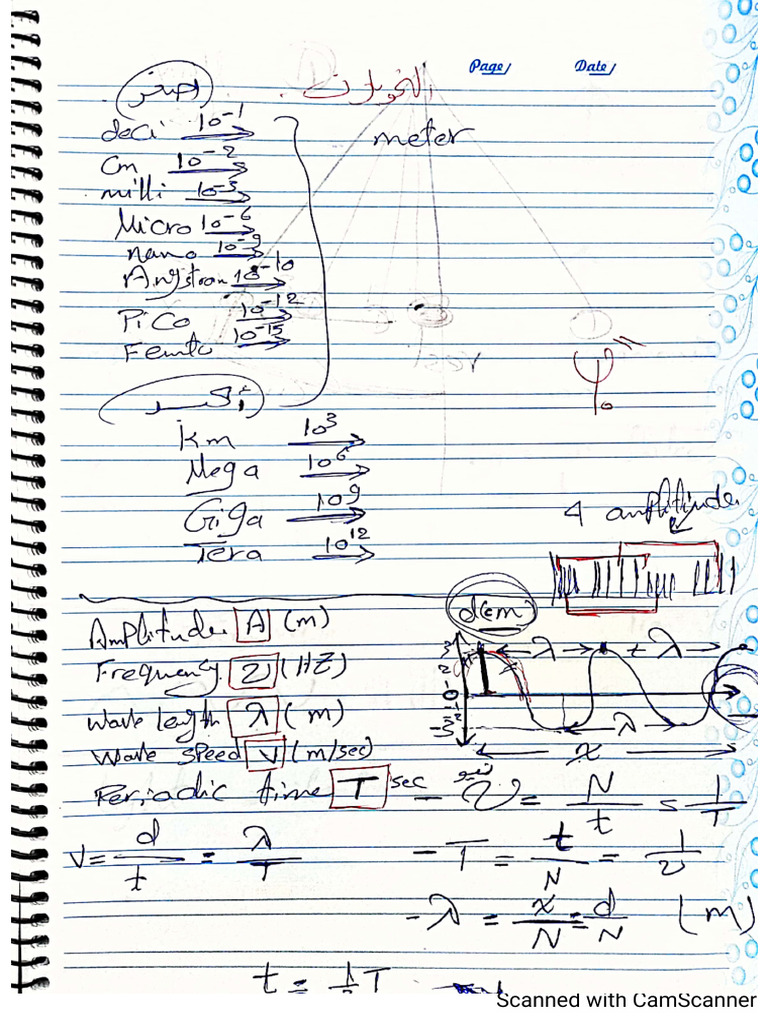 Page/ Date/
التحويلات
اصغر
meter
deci 10-1
cm 10-2
milli 10-3
Micro 10-6
nano 10-9
Angstrom 10-10
Pico 10-12
Femto 10-15
أكبر
km 10³
Mega 10⁶
Giga 10⁹
Tera 10¹²
4 amplitude
Amplitude A (m)
Frequency ν (HZ)
wave length λ (m)
wave speed V (m/sec)
Periodic time T sec
d(cm)
λ λ
λ
x
- ν = N/t = 1/T
V = d/t = λ/T
- T = t/N = 1/ν
- λ = x/N = d/N (m)
Scanned with CamScanner